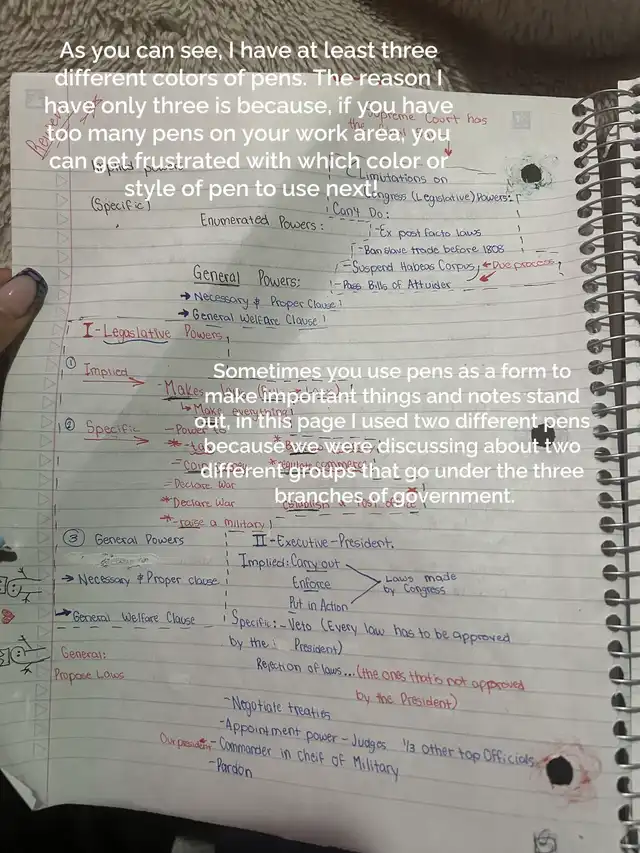 As you can see, I have at least three
different colors of pens. The reason I
have only three is because, if you have
too many pens on your work area, you
can get frustrated with which color or
style of pen to use next!
Supreme Court has
the
Limitations on
Congress (Legislative) Powers:
(Specific)
Can't Do:
Enumerated Powers:
-Ex post facto laws
-Ban slave trade before 1808
-Suspend Habeas Corpus ← Due process
-Pass Bills of Attainder
General Powers:
→ Necessary & Proper Clause
→ General Welfare Clause
I-Legaslative Powers
Sometimes you use pens as a form to
make important things and notes stand
out, in this page I used two different pens
because we were discussing about two
different groups that go under the three
branches of government.
① Implied →
-Makes
↳ Make everything!
② Specific →
-Power to
-Declare War
*Declare War
*-raise a military
③ General Powers
→ Necessary & Proper clause
→ General Welfare Clause
General:
Propose Laws
II-Executive-President.
Implied: Carry out
Enforce
Put in Action
Laws made
by Congress
Specific: -Veto (Every law has to be approved
by the President)
Rejection of laws... (the ones that's not approved
by the President)
-Negotiate treaties
-Appointment power - Judges 1/3 other top Officials
Our president -Commander in cheif of Military
-Pardon